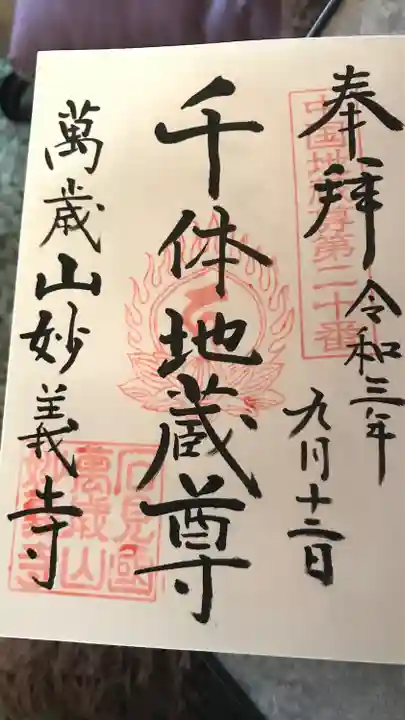 奉拝
令和三年
九月十二日
中国地蔵尊第二十番
千体地蔵尊
萬歳山妙義寺
石見國
萬歳山
妙義寺